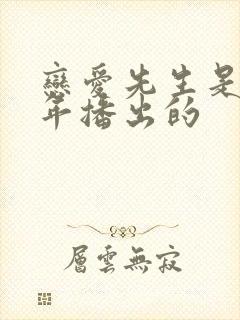 戀愛先生是
年播出的
層雲無寂